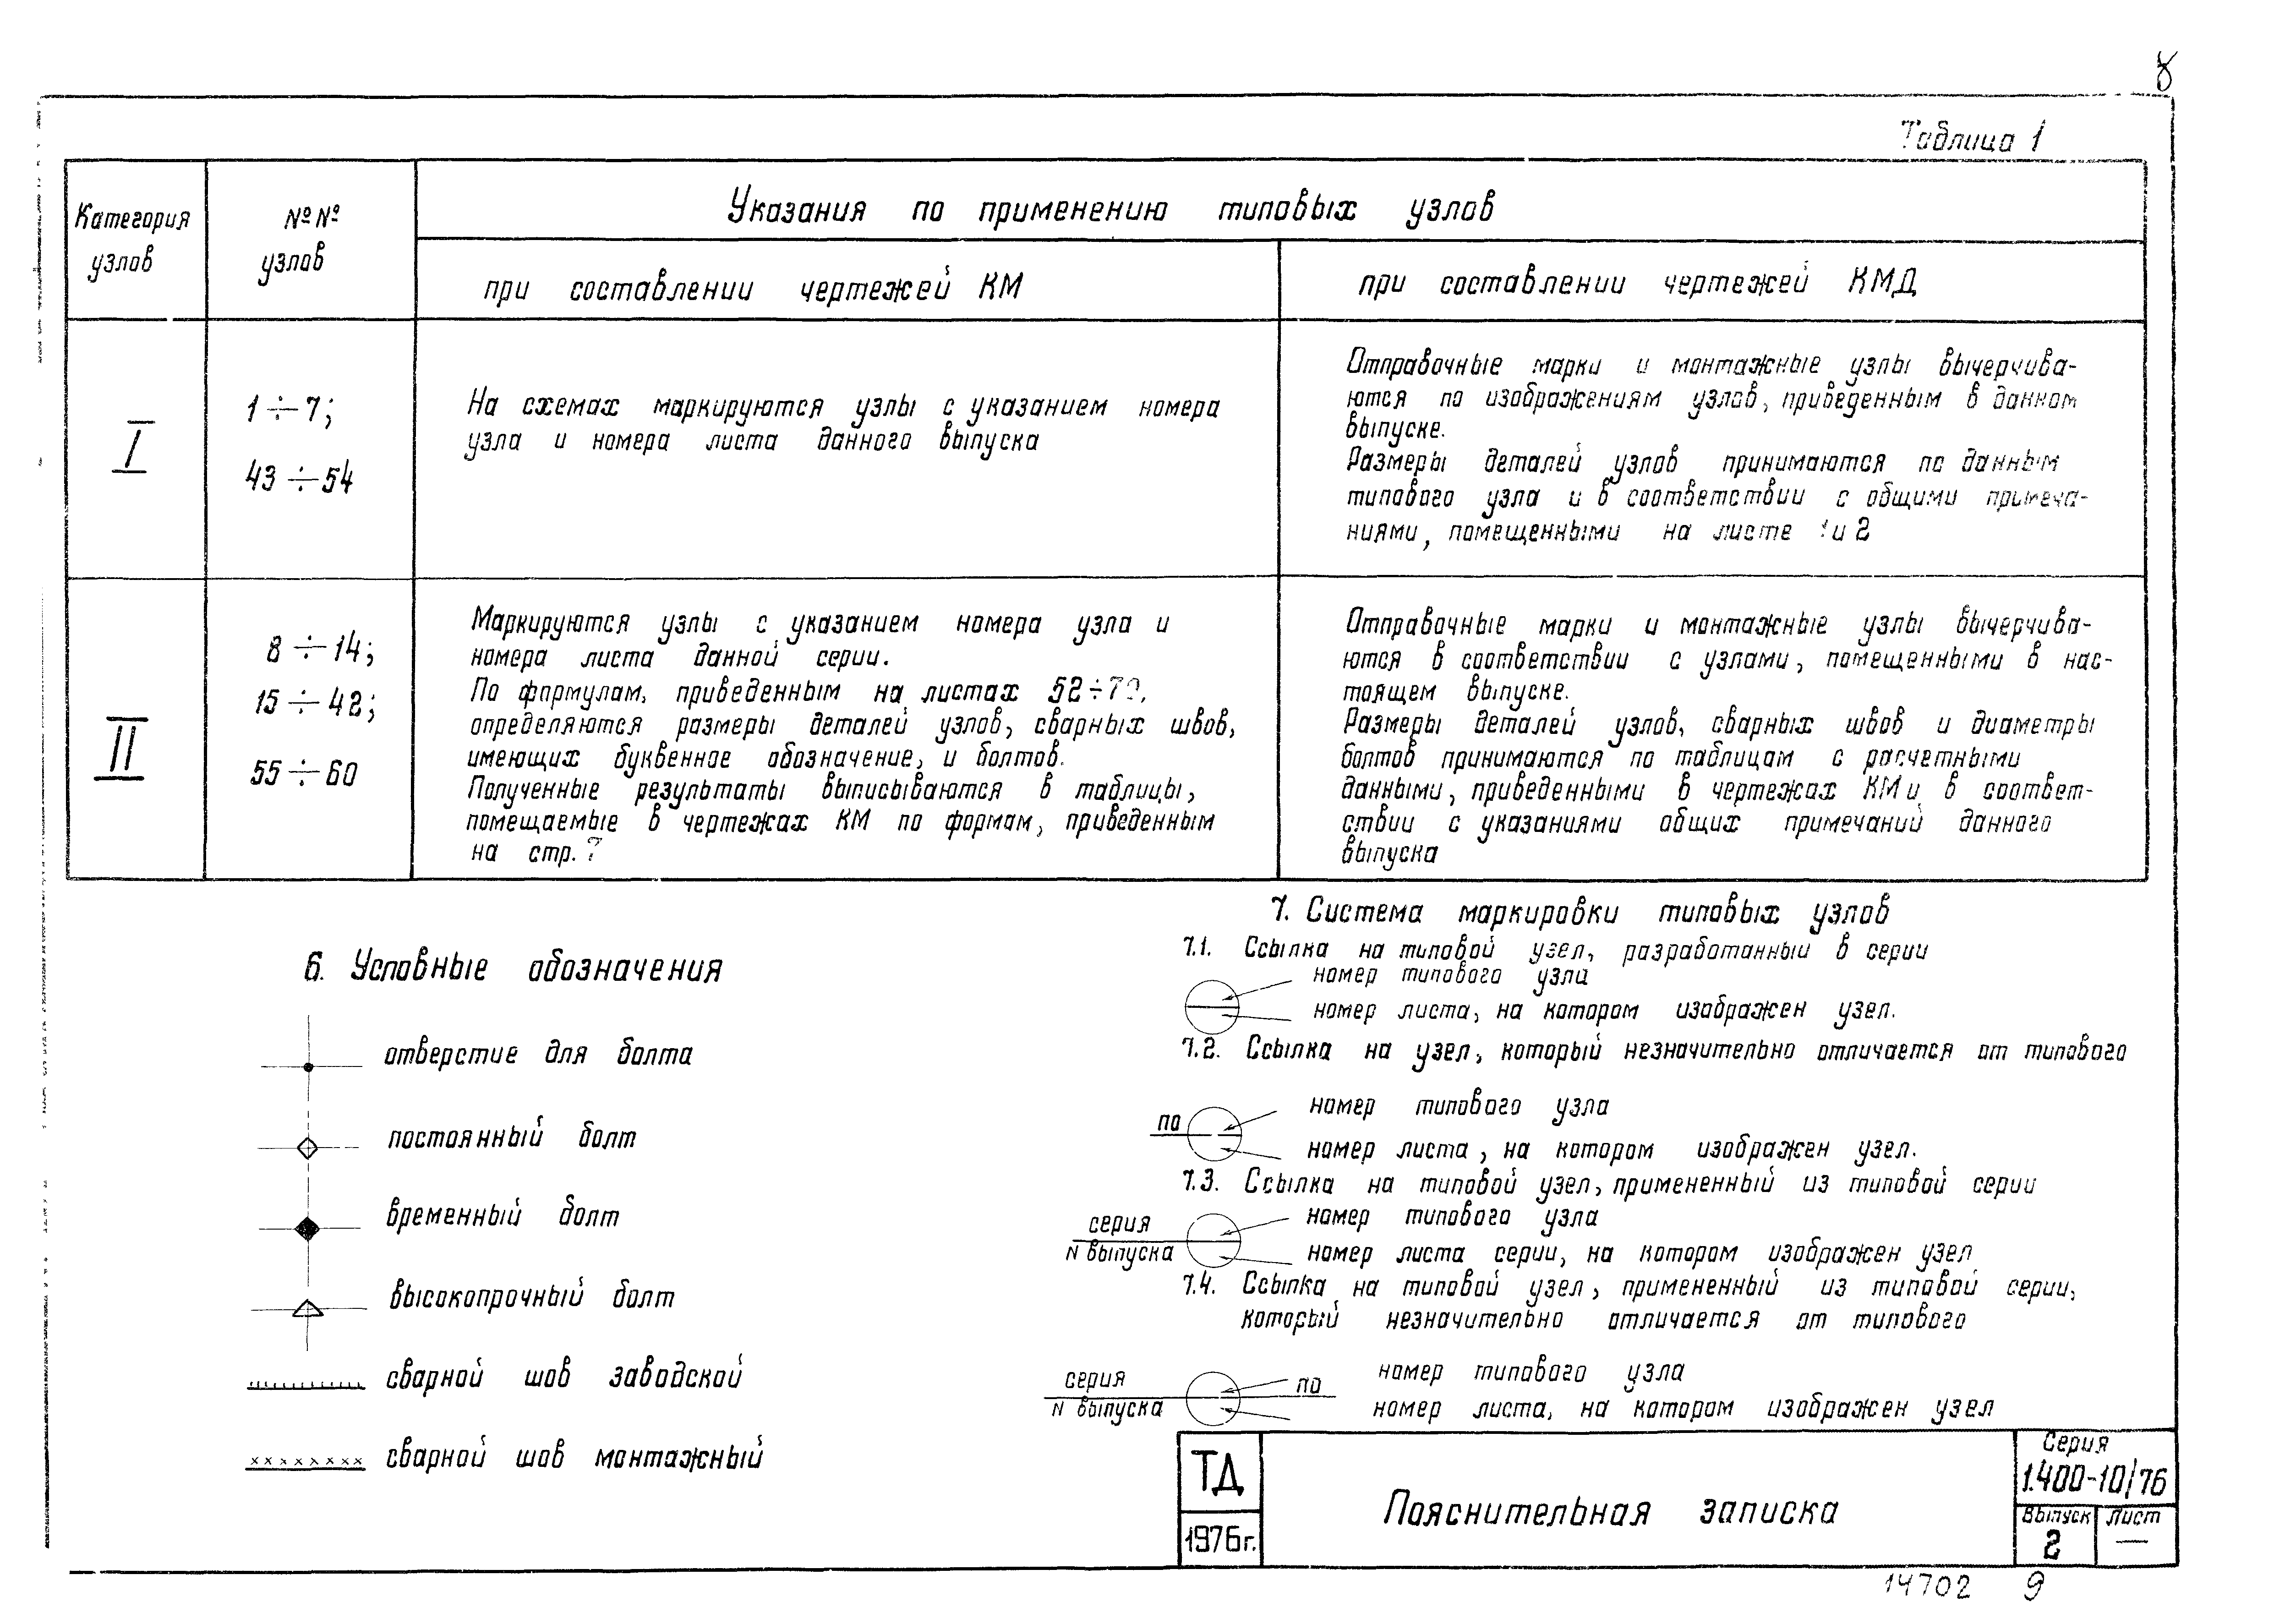 8
Таблица 1
Категория
узлов
№№
узлов
Указания по применению типовых узлов
при составлении чертежей КМ
при составлении чертежей КМД
I
1÷7;
43÷54
На схемах маркируются узлы с указанием номера
узла и номера листа данного выпуска
Отправочные марки и монтажные узлы вычерчива-
ются по изображениям узлов, приведенным в данном
выпуске.
Размеры деталей узлов принимаются по данным
типового узла и в соответствии с общими примеча-
ниями, помещенными на листе 1 и 2
II
8÷14;
15÷42;
55÷60
Маркируются узлы с указанием номера узла и
номера листа данной серии.
По формулам, приведенным на листах
определяются размеры деталей узлов, сварных швов,
имеющих буквенное обозначение, и болтов.
Полученные результаты выписываются в таблицы,
помещаемые в чертежах КМ по формам, приведенным
на стр. 7
Отправочные марки и монтажные узлы вычерчива-
ются в соответствии с узлами, помещенными в нас-
тоящем выпуске.
Размеры деталей узлов, сварных швов и диаметры
болтов принимаются по таблицам с расчетными
данными, приведенными в чертежах КМ и в соответ-
ствии с указаниями общих примечаний данного
выпуска
6. Условные обозначения
отверстие для болта
постоянный болт
временный болт
высокопрочный болт
сварной шов заводской
сварной шов монтажный
7. Система маркировки типовых узлов
7.1. Ссылка на типовой узел, разработанный в серии
номер типового узла
номер листа, на котором изображен узел.
7.2. Ссылка на узел, который незначительно отличается от типового
по
номер типового узла
номер листа, на котором изображен узел.
7.3. Ссылка на типовой узел, примененный из типовой серии
серия
N выпуска
номер типового узла
номер листа серии, на котором изображен узел
7.4. Ссылка на типовой узел, примененный из типовой серии,
который незначительно отличается от типового
серия
N выпуска
по
номер типового узла
номер листа, на котором изображен узел
ТД
1976г.
Пояснительная записка
Серия
1.400-10/76
Выпуск
2
Лист
—
14702 9